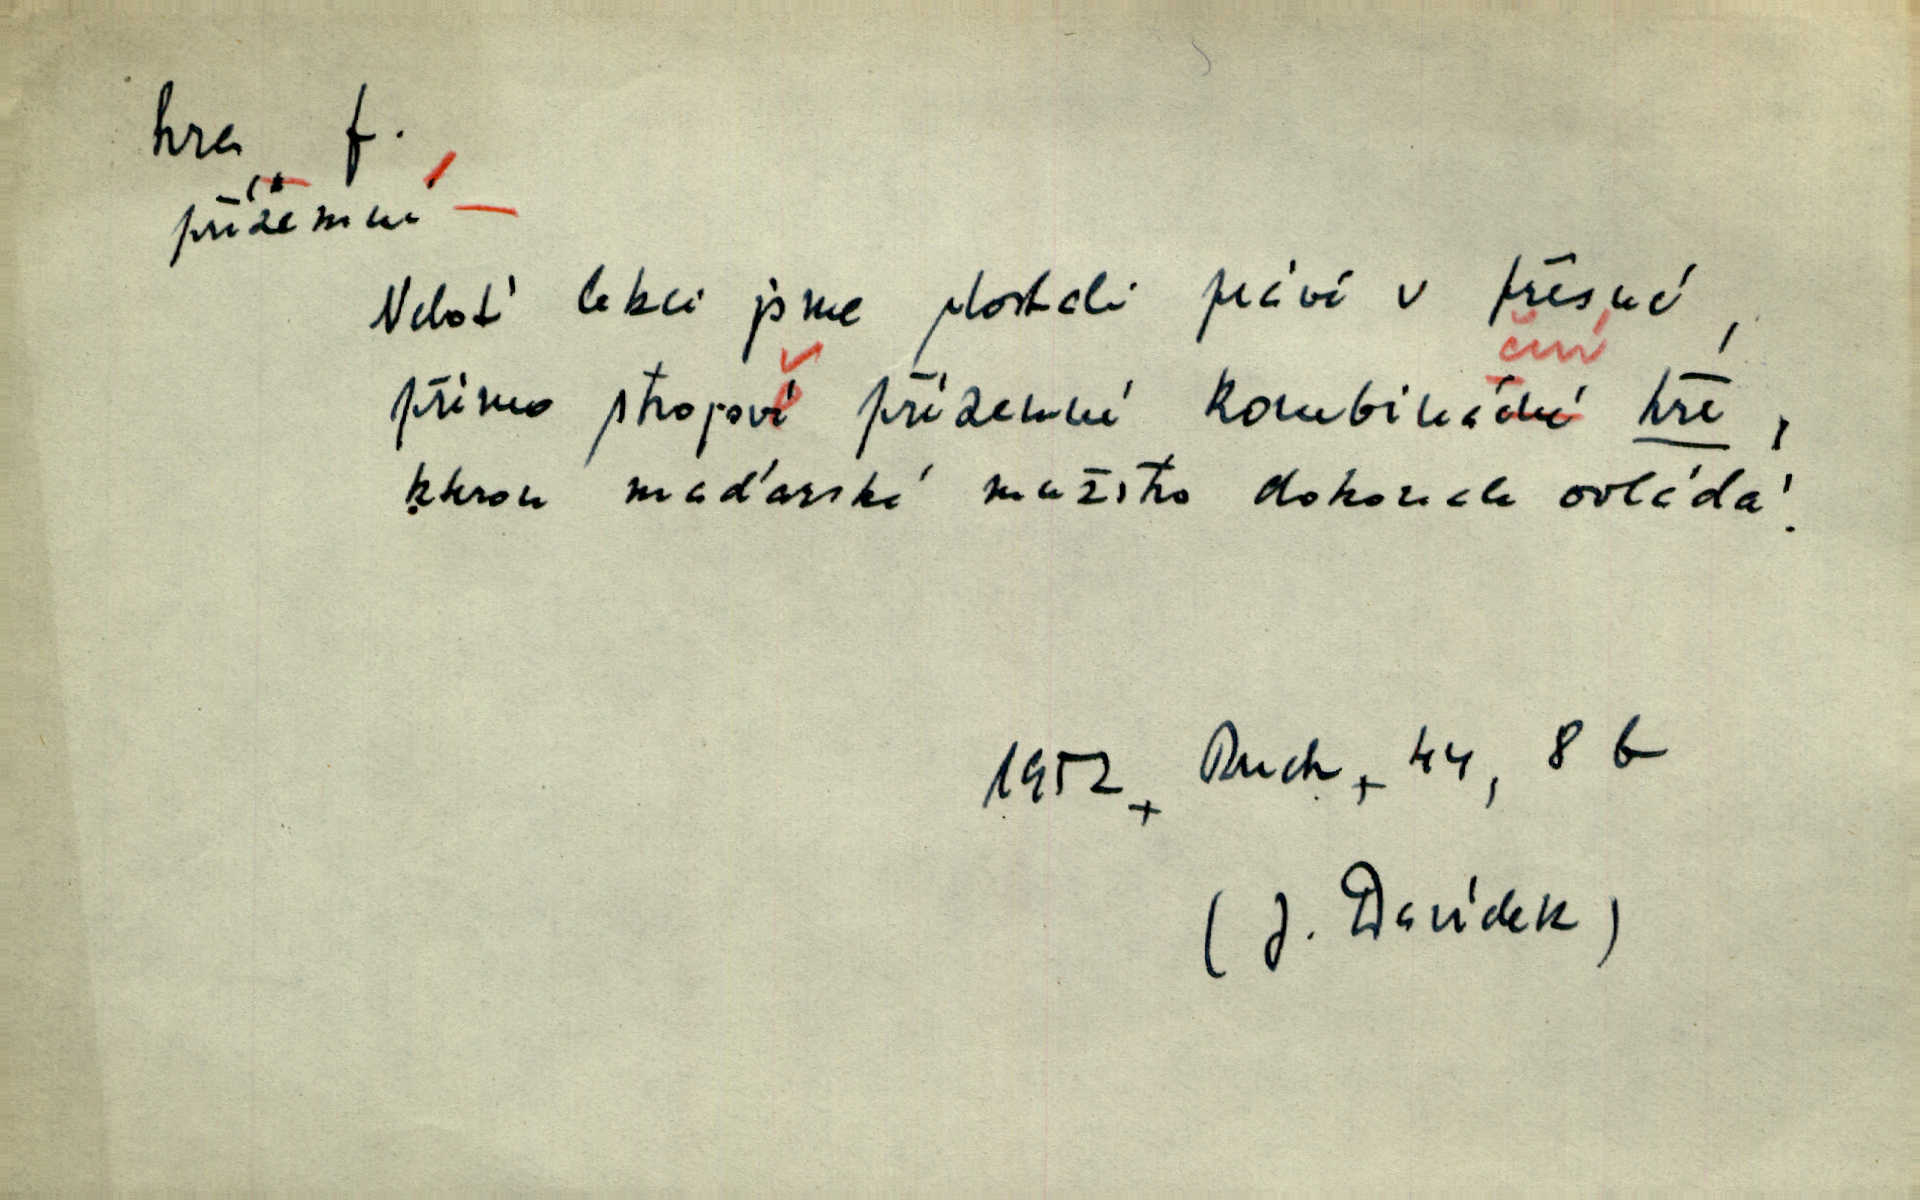 hra f.
přízemní —
Neboť lekci jsme dostali právě v přesné,
ční
přímo strojově přízemní kombinační hře,
kterou maďarské mužstvo dokonale ovládá.
1952, Ruch, 44, 8 b
(J. Davídek)